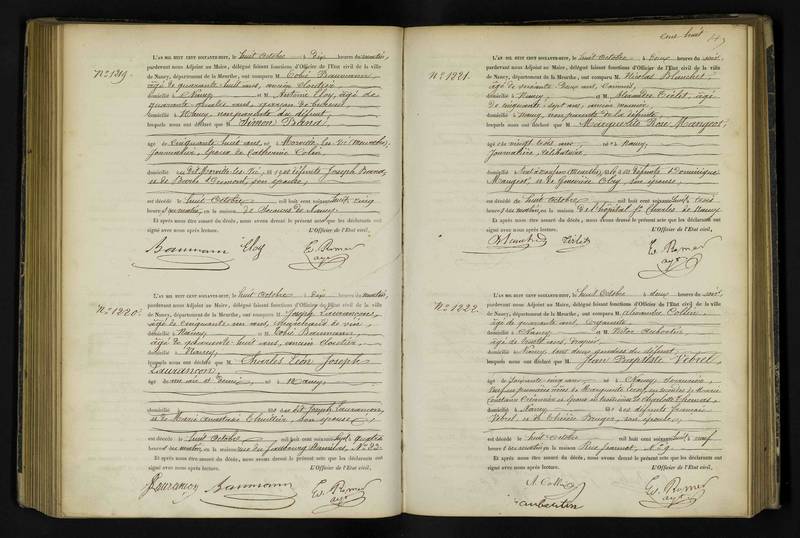 N° 1219.
L'AN MIL HUIT CENT SOIXANTE-HUIT, le huit Octobre à Dix heures du matin,
pardevant nous Adjoint au Maire, délégué faisant fonctions d'Officier de l'État civil de la ville
de Nancy, département de la Meurthe, ont comparu M. Tobie Baumann
âgé de quarante huit ans, ancien cloutier
domicilié à Nancy et M. Antoine Cloy, âgé de
quarante quatre ans, garçon de bureau
domicilié à Nancy non parents du défunt,
lesquels nous ont déclaré que M. Simon Brand
âgé de cinquante huit ans, né à Morville les Vic (Meurthe)
journalier, époux de Catherine Colin
domicilié à Morville les Vic, fils de défunts Joseph Brand,
et de Barbe Dumont, son épouse,
est décédé le huit Octobre mil huit cent soixante-huit, à cinq
heures du matin, en la maison de Secours de Nancy.
Et après nous être assuré du décès, nous avons dressé le présent acte que les déclarants ont
signé avec nous après lecture. L'Officier de l'État civil,
Baumann Cloy E. Romer
ayt
N° 1220.
L'AN MIL HUIT CENT SOIXANTE-HUIT, le huit Octobre à Dix heures du matin,
pardevant nous Adjoint au Maire, délégué faisant fonctions d'Officier de l'État civil de la ville
de Nancy, département de la Meurthe, ont comparu M. Joseph Laurançon,
âgé de cinquante un ans, marchand de vin,
domicilié à Nancy et M. Tobie Baumann,
âgé de quarante huit ans, ancien cloutier,
domicilié à Nancy,
lesquels nous ont déclaré que M. Charles Léon Joseph
Laurançon,
âgé de un an et demi, né à Nancy,
domicilié fils de dit Joseph Laurançon,
et de Marie Anastasie, son épouse
est décédé le huit Octobre mil huit cent soixante-huit, à quatre
heures du matin, en la maison rue du faubourg Stanislas, N°
Et après nous être assuré du décès, nous avons dressé le présent acte que les déclarants ont
signé avec nous après lecture. L'Officier de l'État civil,
Laurançon Baumann E. Romer
ayt
cent huit
N° 1221.
L'AN MIL HUIT CENT SOIXANTE-HUIT, le huit Octobre à deux heures du soir,
pardevant nous Adjoint au Maire, délégué faisant fonctions d'Officier de l'État civil de la ville
de Nancy, département de la Meurthe, ont comparu M. Nicolas Blanchet,
âgé de soixante deux ans,
domicilié à Nancy et M. Alexandre, âgé
de cinquante sept ans,
domicilié à Nancy, non parents de la défunte,
lesquels nous ont déclaré que M. Marguerite Rose Mangeot,
âgée de vingt trois ans née à Nancy
journalière, célibataire,
domiciliée fille de défunts Dominique
Mangeot, et de Geneviève Cloy, son épouse,
est décédée le huit Octobre mil huit cent soixante-huit, à trois
heures du matin, en la maison de l'hôpital St Charles de Nancy
Et après nous être assuré du décès, nous avons dressé le présent acte que les déclarants ont
signé avec nous après lecture. L'Officier de l'État civil,
Blanchet E. Romer
ayt
N° 1222.
L'AN MIL HUIT CENT SOIXANTE-HUIT, le huit Octobre à deux heures du soir,
pardevant nous Adjoint au Maire, délégué faisant fonctions d'Officier de l'État civil de la ville
de Nancy, département de la Meurthe, ont comparu M. Alexandre Collin,
âgé de quarante ans,
domicilié à Nancy et M. Victor Aubertin
âgé de trente ans,
domicilié à Nancy, tous deux gendres du défunt,
lesquels nous ont déclaré que M. Jean Baptiste Vebrel,
âgé de soixante cinq ans, né à Nancy,
veuf en premières noces de Marguerite
et époux en de Charlotte Thomas,
domicilié à Nancy, fils de défunts François
Vebrel, et de Thérèse, son épouse,
est décédé le huit Octobre mil huit cent soixante-huit, à neuf
heures du matin, en la maison Rue, N° 9.
Et après nous être assuré du décès, nous avons dressé le présent acte que les déclarants ont
signé avec nous après lecture. L'Officier de l'État civil,
A. Collin E. Romer
Aubertin ayt